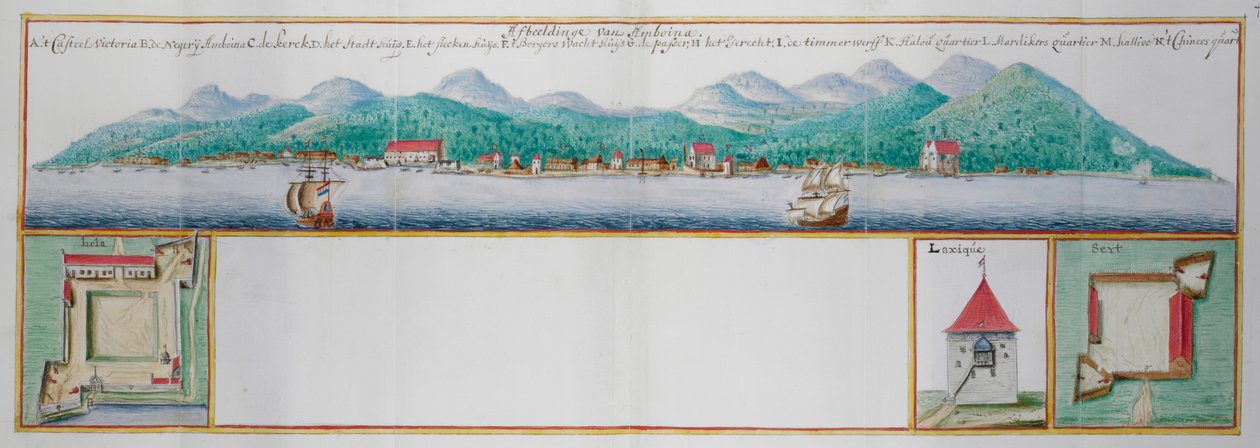 Afbeeldinge van Amboina.
A.'t Casteel Victoria B. de Negery Amboina C. de kerck, D. het Stadt huijs, E. het siecken huijs, F. t. borgers Wacht huijs G. de passer, H het Gerecht, I. de timmerwerff K. Halou quartier L. Mardikers quartier M. hative N. 't Chinees quart
hela
Laxique
Seyt